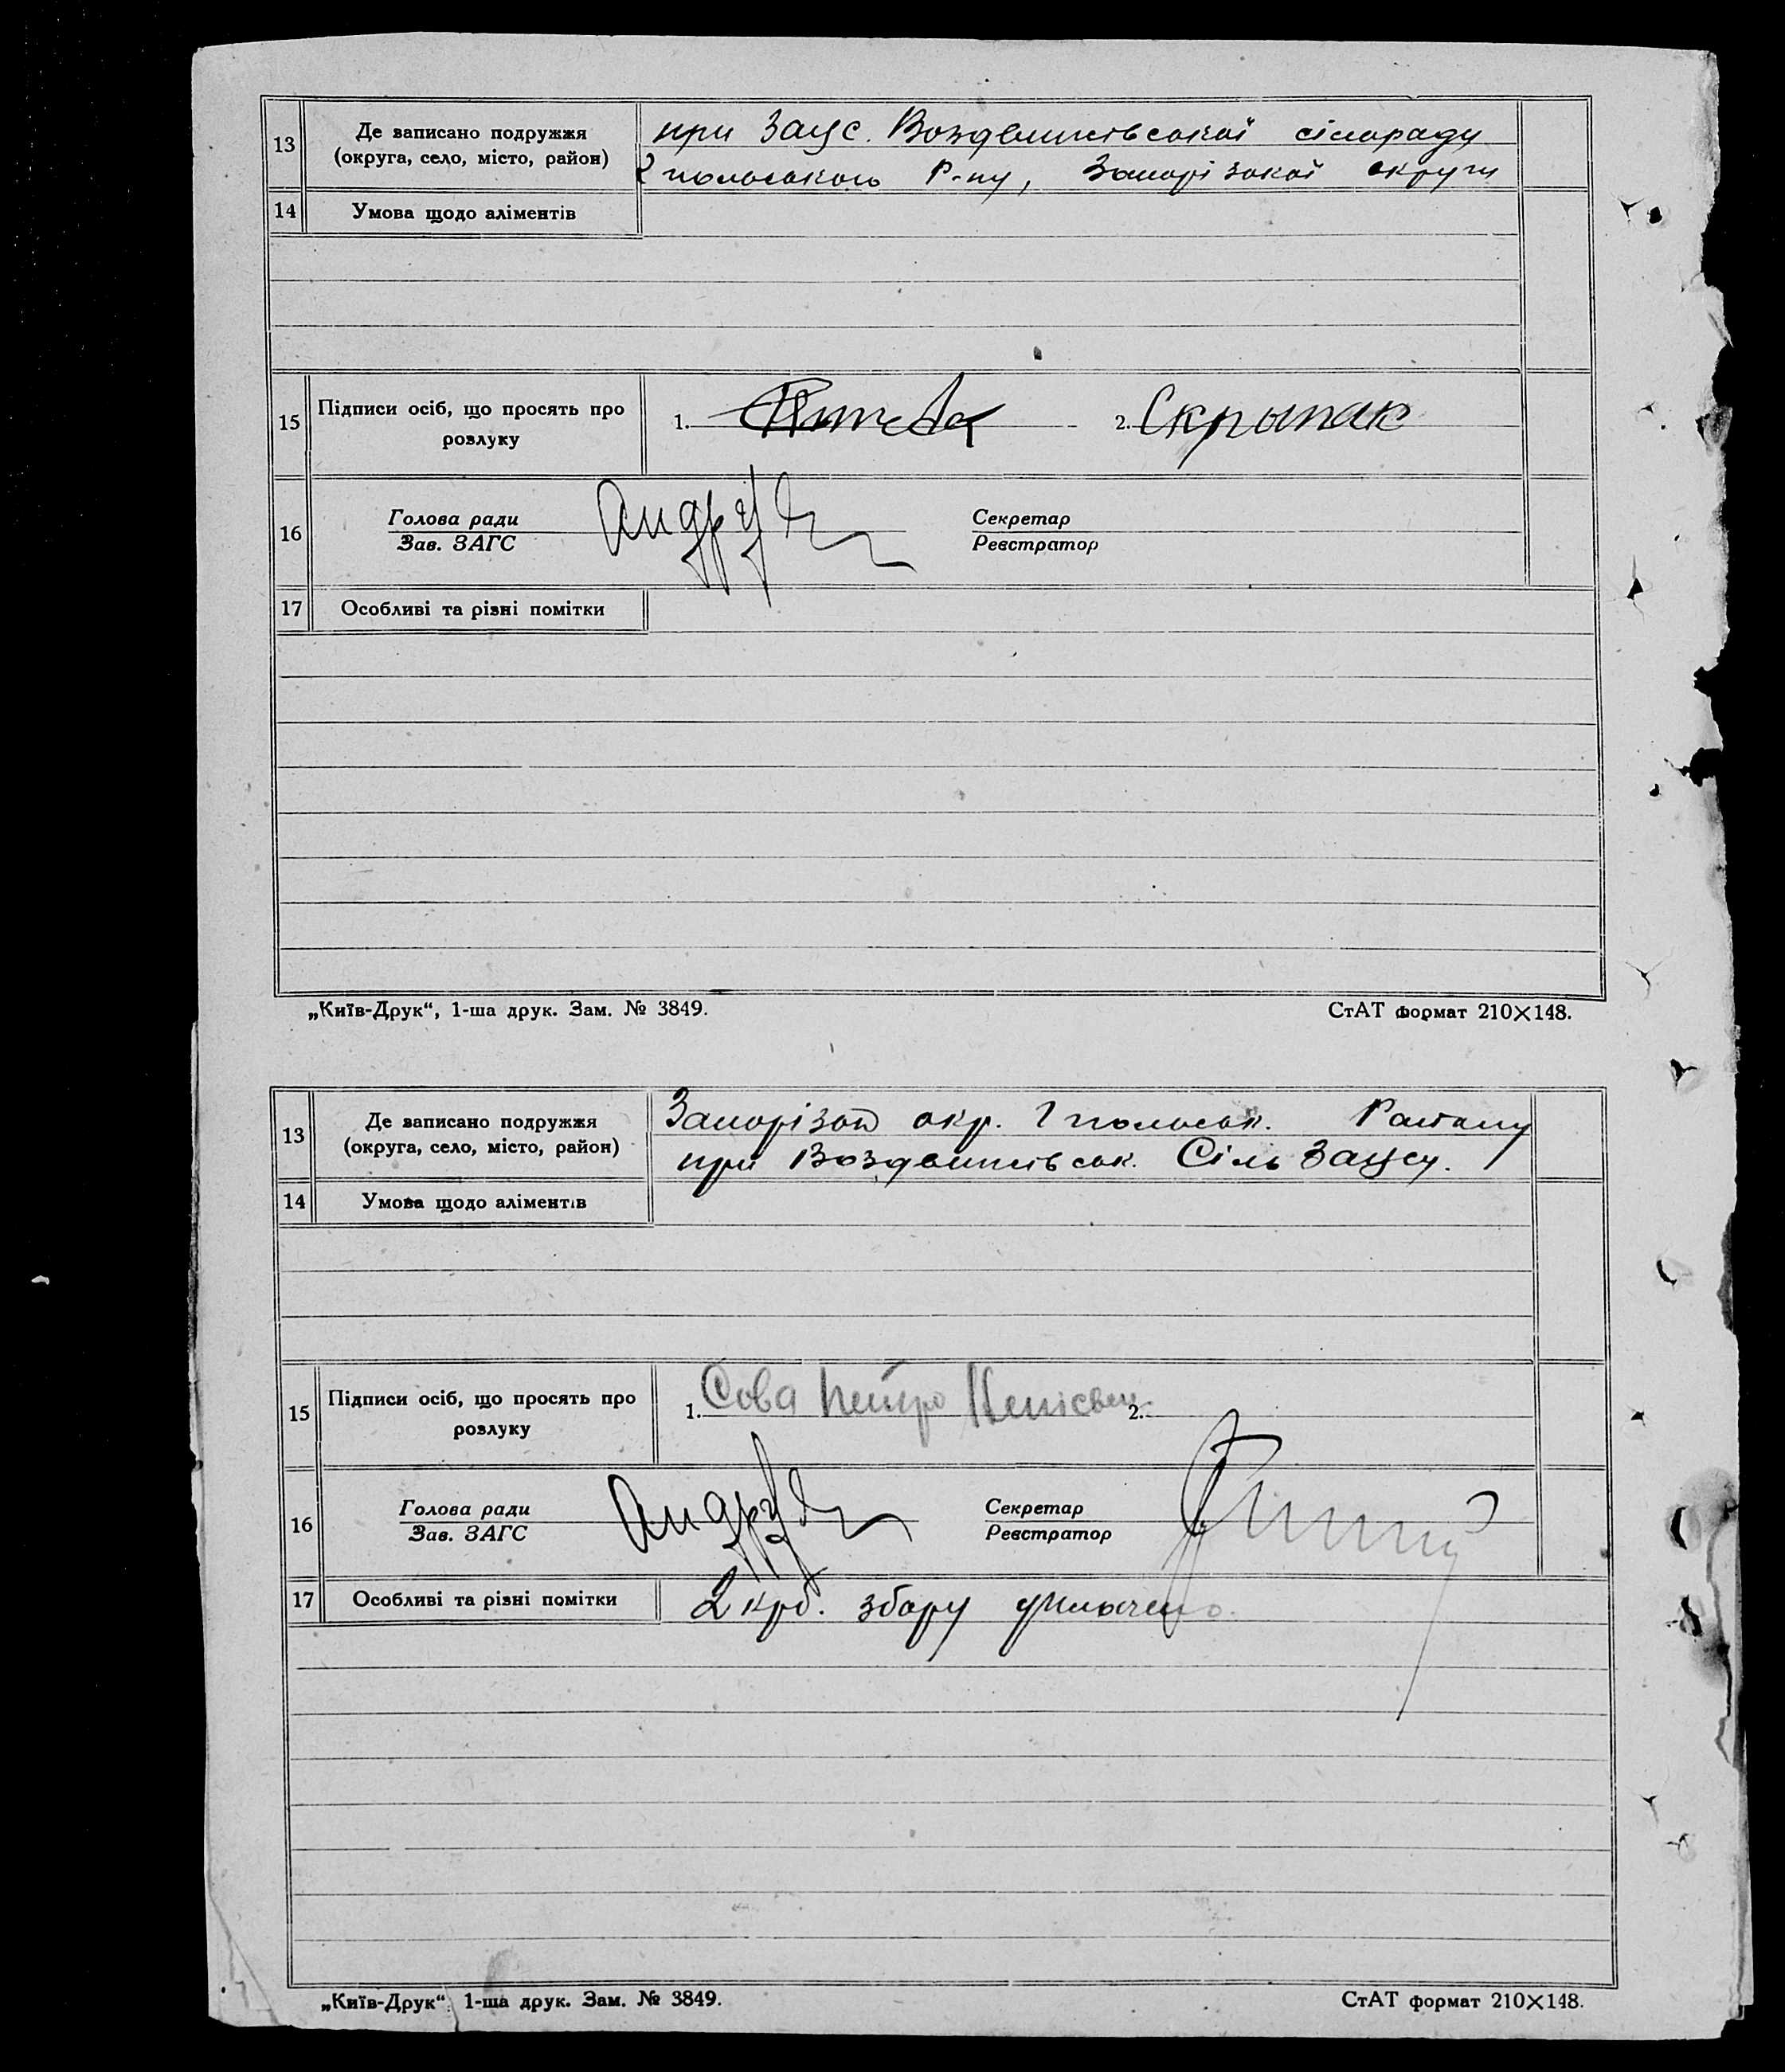 13 Де записано подружжя (округа, село, місто, район) при Загс. Воздвижівської сільраду
Гполоського Р-ну, Запорізької округи
14 Умова щодо аліментів
15 Підписи осіб, що просять про розлуку 1. 2. Скрыпак
16 Голова ради Секретар
Зав. ЗАГС Реєстратор
17 Особливі та різні помітки
„Київ-Друк“, 1-ша друк. Зам. № 3849. СтАТ формат 210×148.
13 Де записано подружжя (округа, село, місто, район) Запорізьк окр. Гпольськ. Району
при Воздвижівськ. Сіль Загсу.
14 Умова щодо аліментів
15 Підписи осіб, що просять про розлуку 1. Сова Петро 2.
16 Голова ради Секретар
Зав. ЗАГС Реєстратор
17 Особливі та різні помітки 2 крб. збору уплочено.
„Київ-Друк“, 1-ша друк. Зам. № 3849. СтАТ формат 210×148.